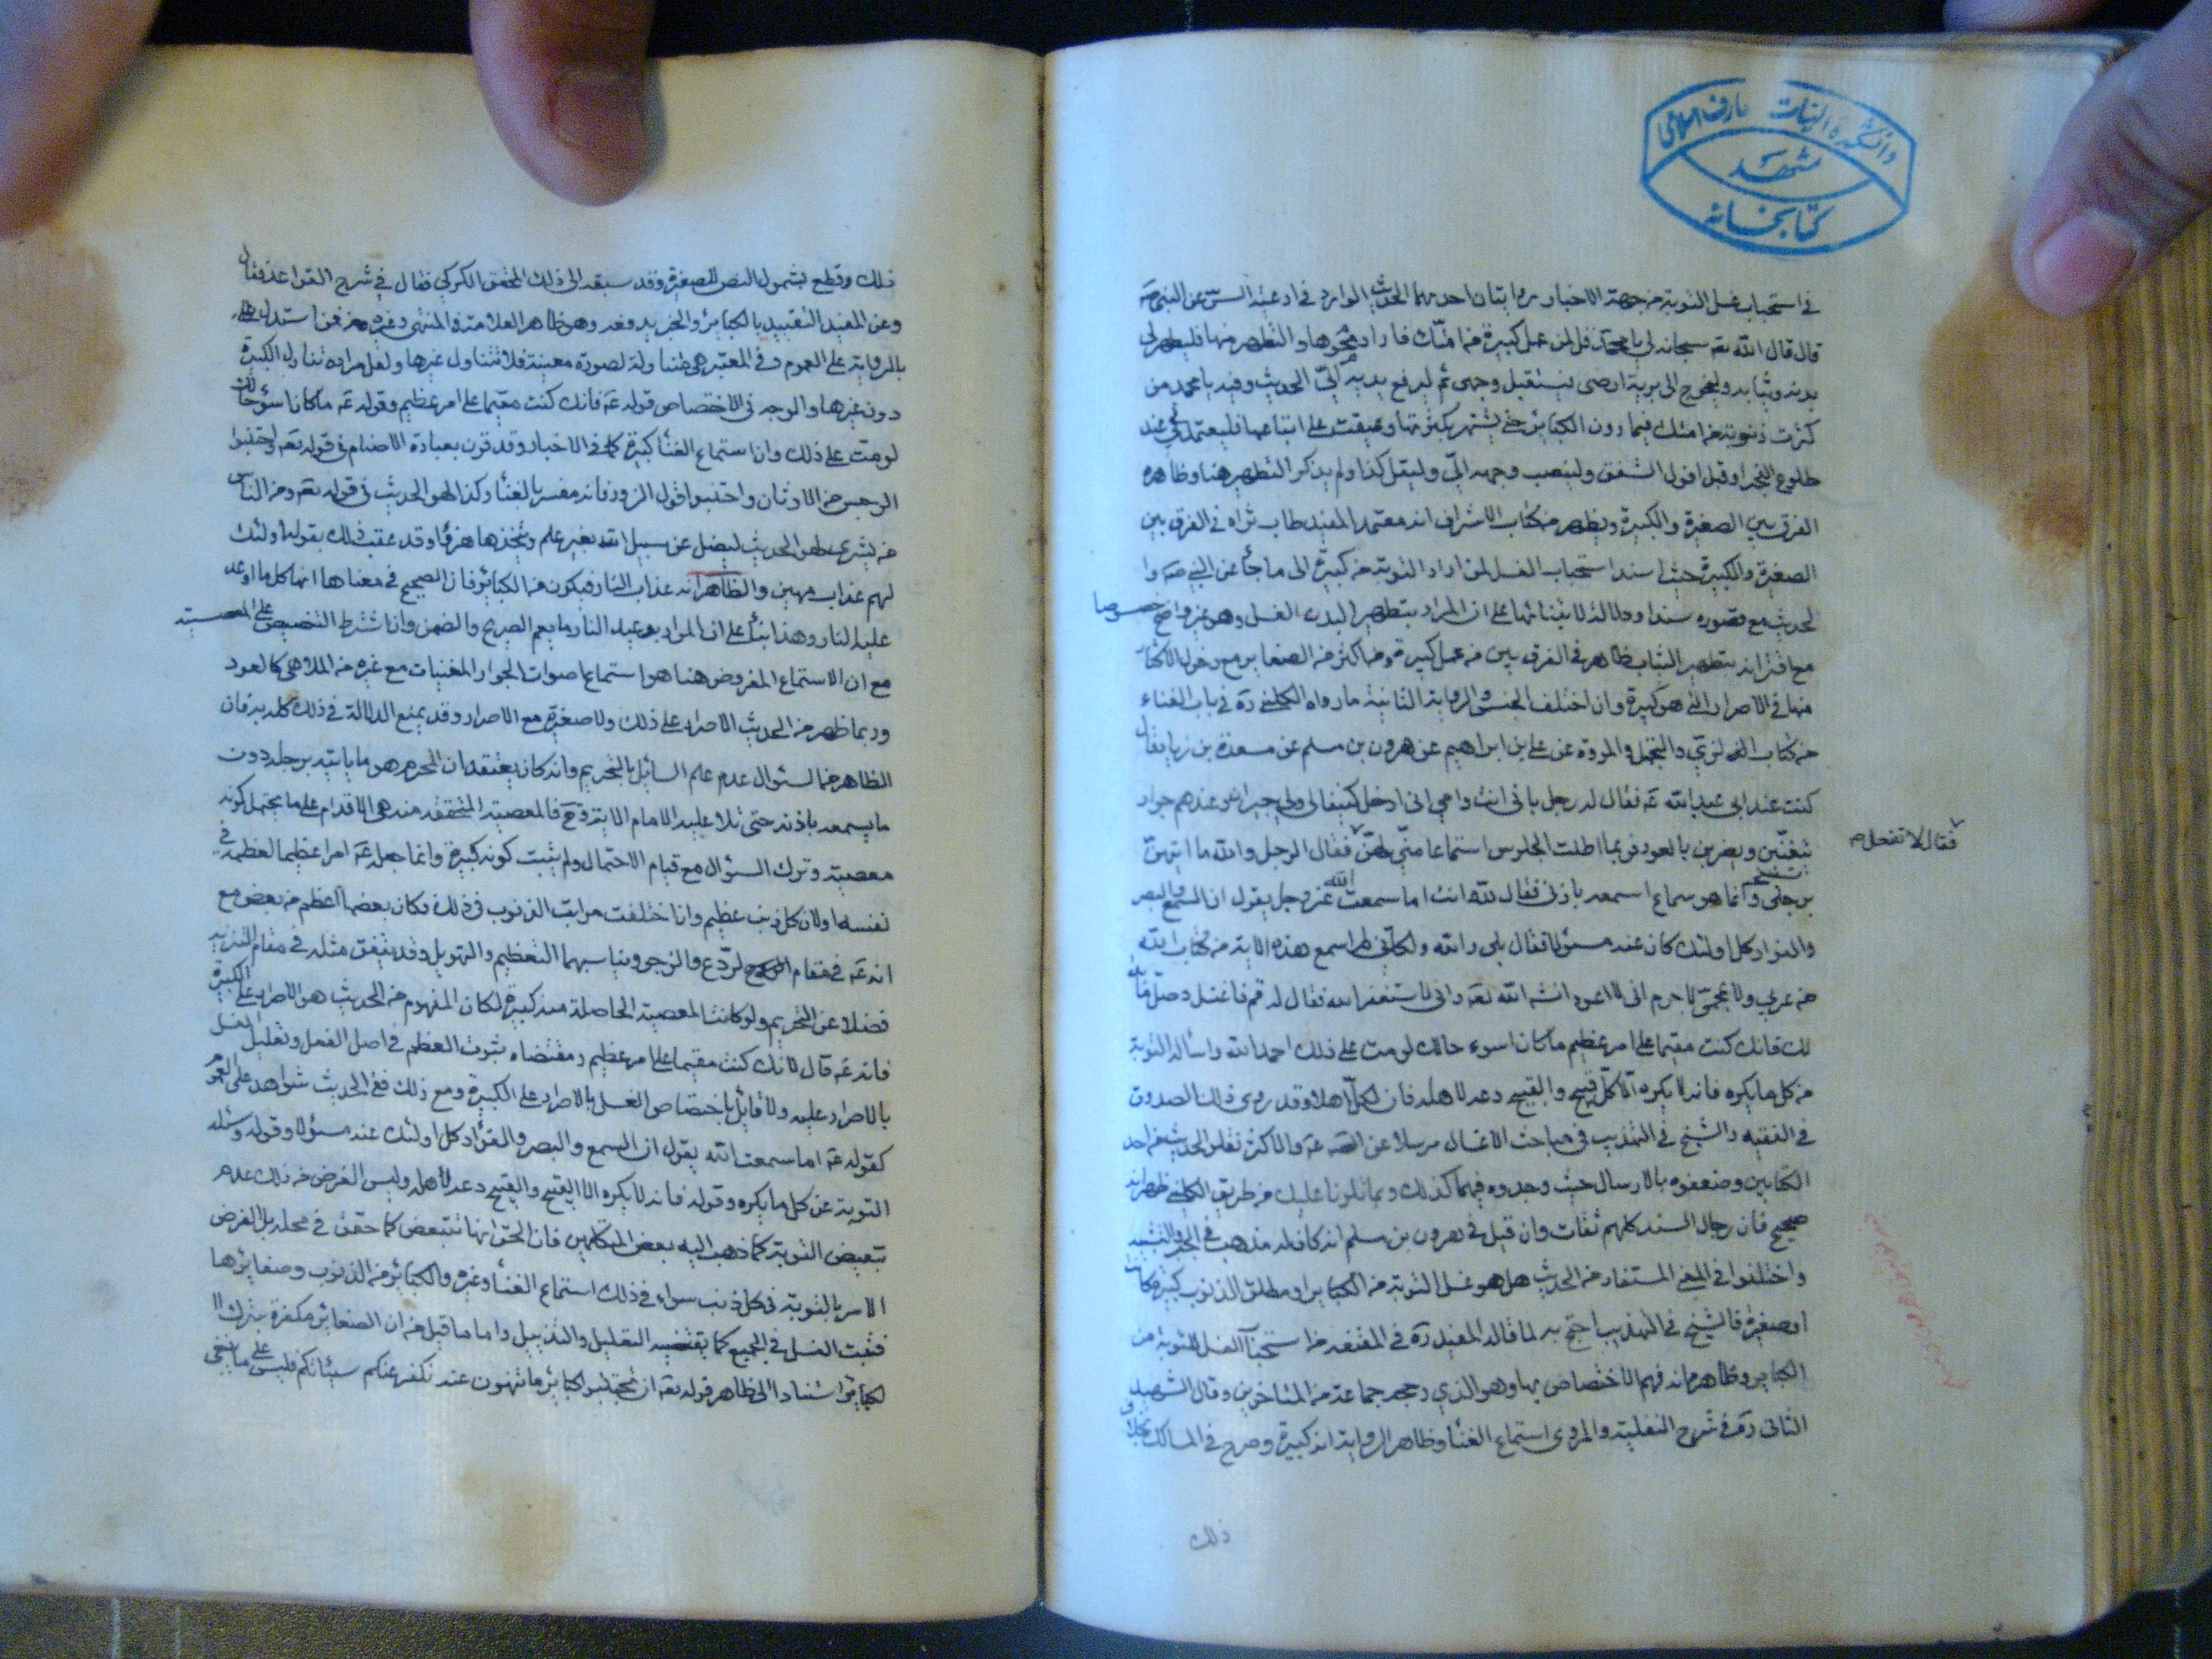 دانشکده الهیات معارف اسلامی
مشهد
کتابخانه
في استحباب غسل التوبة من جهة الاخبار روايتان احدهما الحديث الوارد في ادعية السر عن النبي ص
قال قال الله تعه سبحانه لي يا محمد قل لمن عمل كبيرة من امتك فاراد محوها والتطهر منها فليطهر لي
بدنه وثيابه وليخرج الى برية ارضي فليستقبل وجهي ثم ليرفع يديه الي الحديث وفيه يا محمد من
كثرت ذنوبه من امتك فيما دون الكباير حتى يشتهر بكثرتها وعيقت على اتباعها فليعتمدني عند
طلوع الفجر او قبل افول الشفق ولينصب وجهه الي وليقل كذا ولم يذكر التطهير هنا وظاهره
الفرق بين الصغيرة والكبيرة ويظهر من كتاب الاشراف انه معتمد المفيد طاب ثراه في الفرق بين
الصغيرة والكبيرة حيث اسند استحباب الغسل لمن اراد التوبة من كبيرة الى ما جاء عن النبي ص وا
لحديث مع قصوره سندا ودلالة لابتنائها على ان المراد بتطهير البدن الغسل وهو غير واضح خصوصا
مع اقترانه بتطهير الثياب ظاهر في الفرق بين من عمل كبيرة ومن اكثر من الصغاير مع دخول الاكثار
منها في الاصرار التي هو كبيرة وان اختلف الجنس والرواية الثانية ما رواه الكليني ره في باب الغناء
من كتاب الزي والتجمل والمروة عن علي بن ابراهيم عن هرون بن مسلم عن مسعدة بن زياد قال
كنت عند ابي عبد الله ع فقال له رجل بابي انت وامي اني ادخل كنيفا لي ولي جيران عندهم جوار
تتغنين ويضربن بالعود فربما اطلت الجلوس استماعا مني لهن فقال الرجل والله ما اتيهن
فقال لا تفعل
برجلي وانما هو سماع اسمعه باذني فقال لله انت اما سمعت الله عز وجل يقول ان السمع والبصر
والفؤاد كل اولئك كان عنه مسؤلا فقال بلى والله ولكاني لم اسمع هذه الاية من كتاب الله
من عربي ولا عجمي لا جرم اني لا اعود انشه الله تعه واني لاستغفر الله فقال له قم فاغتسل وصل ما بدا
لك فانك كنت مقيما على امر عظيم ما كان اسوء حالك لو مت على ذلك احمد الله واساله التوبة
من كل ما يكره فانه لا يكره الا كل قبيح والقبيح دعه لاهله فان لكل اهلا وقد روى ذلك الصدوق
في الفقيه والشيخ في التهذيب في مباحث الاغسال مرسلا عن الصه ع والاكثر نقلوا الحديث من احد
الكتابين وضعفوه بالارسال حيث وجدوه فيهما كذلك وبما تلونا عليك من طريق الكليني ظهر انه
صحيح فان رجال السند كلهم ثقات وان قيل في هرون بن مسلم انه كان له مذهب في الجبر والتشبيه
واختلفوا في المعنى المستفاد من الحديث هل هو غسل التوبة من الكباير او مطلق الذنوب كبيرة كانت
او صغيرة فالشيخ في التهذيب احتج به لما قاله المفيد ره في المقنعة من استحباب الغسل للتوبة من
الكباير وظاهره انه فهم الاختصاص بها وهو الذي رجحه جماعة من المتاخرين وقال الشهيد
الثاني ره في شرح النفلية والمروي استماع الغناء وظاهر الرواية انه كبيرة وصرح في المسالك بخلاف
ذلك
ذلك وقطع بشمول النص للصغيرة وقد سبقه الى ذلك المحقق الكركي فقال في شرح القواعد فقال
وعن المفيد التقييد بالكباير والخبر يدفعه وهو ظاهر العلامة في المنتهى وغيره ممن استدل
بالرواية على العموم وفي المعتبر هي متناولة لصورة معينة فلا تتناول غيرها ولعل مراده تناول الكبيرة
دون غيرها والوجه في الاختصاص قوله ع فانك كنت مقيما على امر عظيم وقوله ع ما كان اسوء حالك
لو مت على ذلك وان استماع الغناء كبيرة كما في الاخبار وقد قرن بعبادة الاصنام في قوله تعه واجتنبوا
الرجس من الاوثان واجتنبوا قول الزور فانه مفسر بالغناء وكذا لهو الحديث في قوله تعه ومن الناس
من يشتري لهو الحديث ليضل عن سبيل الله بغير علم ويتخذها هزوا وقد عقب ذلك بقوله اولئك
لهم عذاب مهين والظاهر انه عذاب النار فيكون من الكباير فان الصحيح في معناها انها كل ما اوعد
عليه النار وهذا بناء على ان المراد بوعيد النار ما يعم الصريح والضمن وان اشترط التنصيص على المعصية
مع ان الاستماع المفروض هنا هو استماع اصوات الجوار المغنيات مع غيره من الملاهي كالعود
وربما ظهر من الحديث الاصرار على ذلك ولا صغيرة مع الاصرار وقد يمنع الدلالة في ذلك كله بد فان
الظاهر من السؤال عدم علم السائل بالتحريم وانه كان يعتقد ان المحرم هو ما ياتيه برجله دون
ما يسمعه باذنه حتى تلا عليه الامام الاية وح فالمعصية المتحققة منه هي الاقدام على ما يحتمل كونه
معصية وترك السؤال مع قيام الاحتمال ولم يثبت كونه كبيرة وانما جعله ع امرا عظيما لعظمه في
نفسه او لان كل ذنب عظيم وان اختلفت مراتب الذنوب في ذلك فكان بعضها اعظم من بعض مع
انه ع في مقام الردع والزجر ويناسبهما التعظيم والتهويل وقد يتفق مثله في مقام التنزيه
فضلا عن التحريم ولو كانت المعصية الحاصلة منه كبيرة لكان المفهوم من الحديث هو الاصرار على الكبيرة
فانه ع قال لانك كنت مقيما على امر عظيم ومقتضاه ثبوت العظم في اصل الفعل وتعليل الغسل
بالاصرار عليه ولا قائل باختصاص الغسل بالاصرار على الكبيرة ومع ذلك ففي الحديث شواهد على العموم
كقوله ع اما سمعت الله يقول ان السمع والبصر والفؤاد كل اولئك عنه مسؤلا وقوله وسله
التوبة عن كل ما يكره وقوله فانه لا يكره الا القبيح والقبيح دعه لاهله وليس الغرض من ذلك عدم
تبعيض التوبة كما ذهب اليه بعض المتكلمين فان الحق انها تتبعض كما حقق في محله بل الغرض
الامر بالتوبة في كل ذنب سواء في ذلك استماع الغناء وغيره والكباير من الذنوب وصغايرها
فثبت الغسل في الجميع كما يقتضيه التعليل والتذييل واما ما قيل من ان الصغاير مكفرة بترك ا
لكباير استنادا الى ظاهر قوله تعه ان تجتنبوا كباير ما تنهون عنه نكفر عنكم سيئاتكم فليس على ما ينبغي